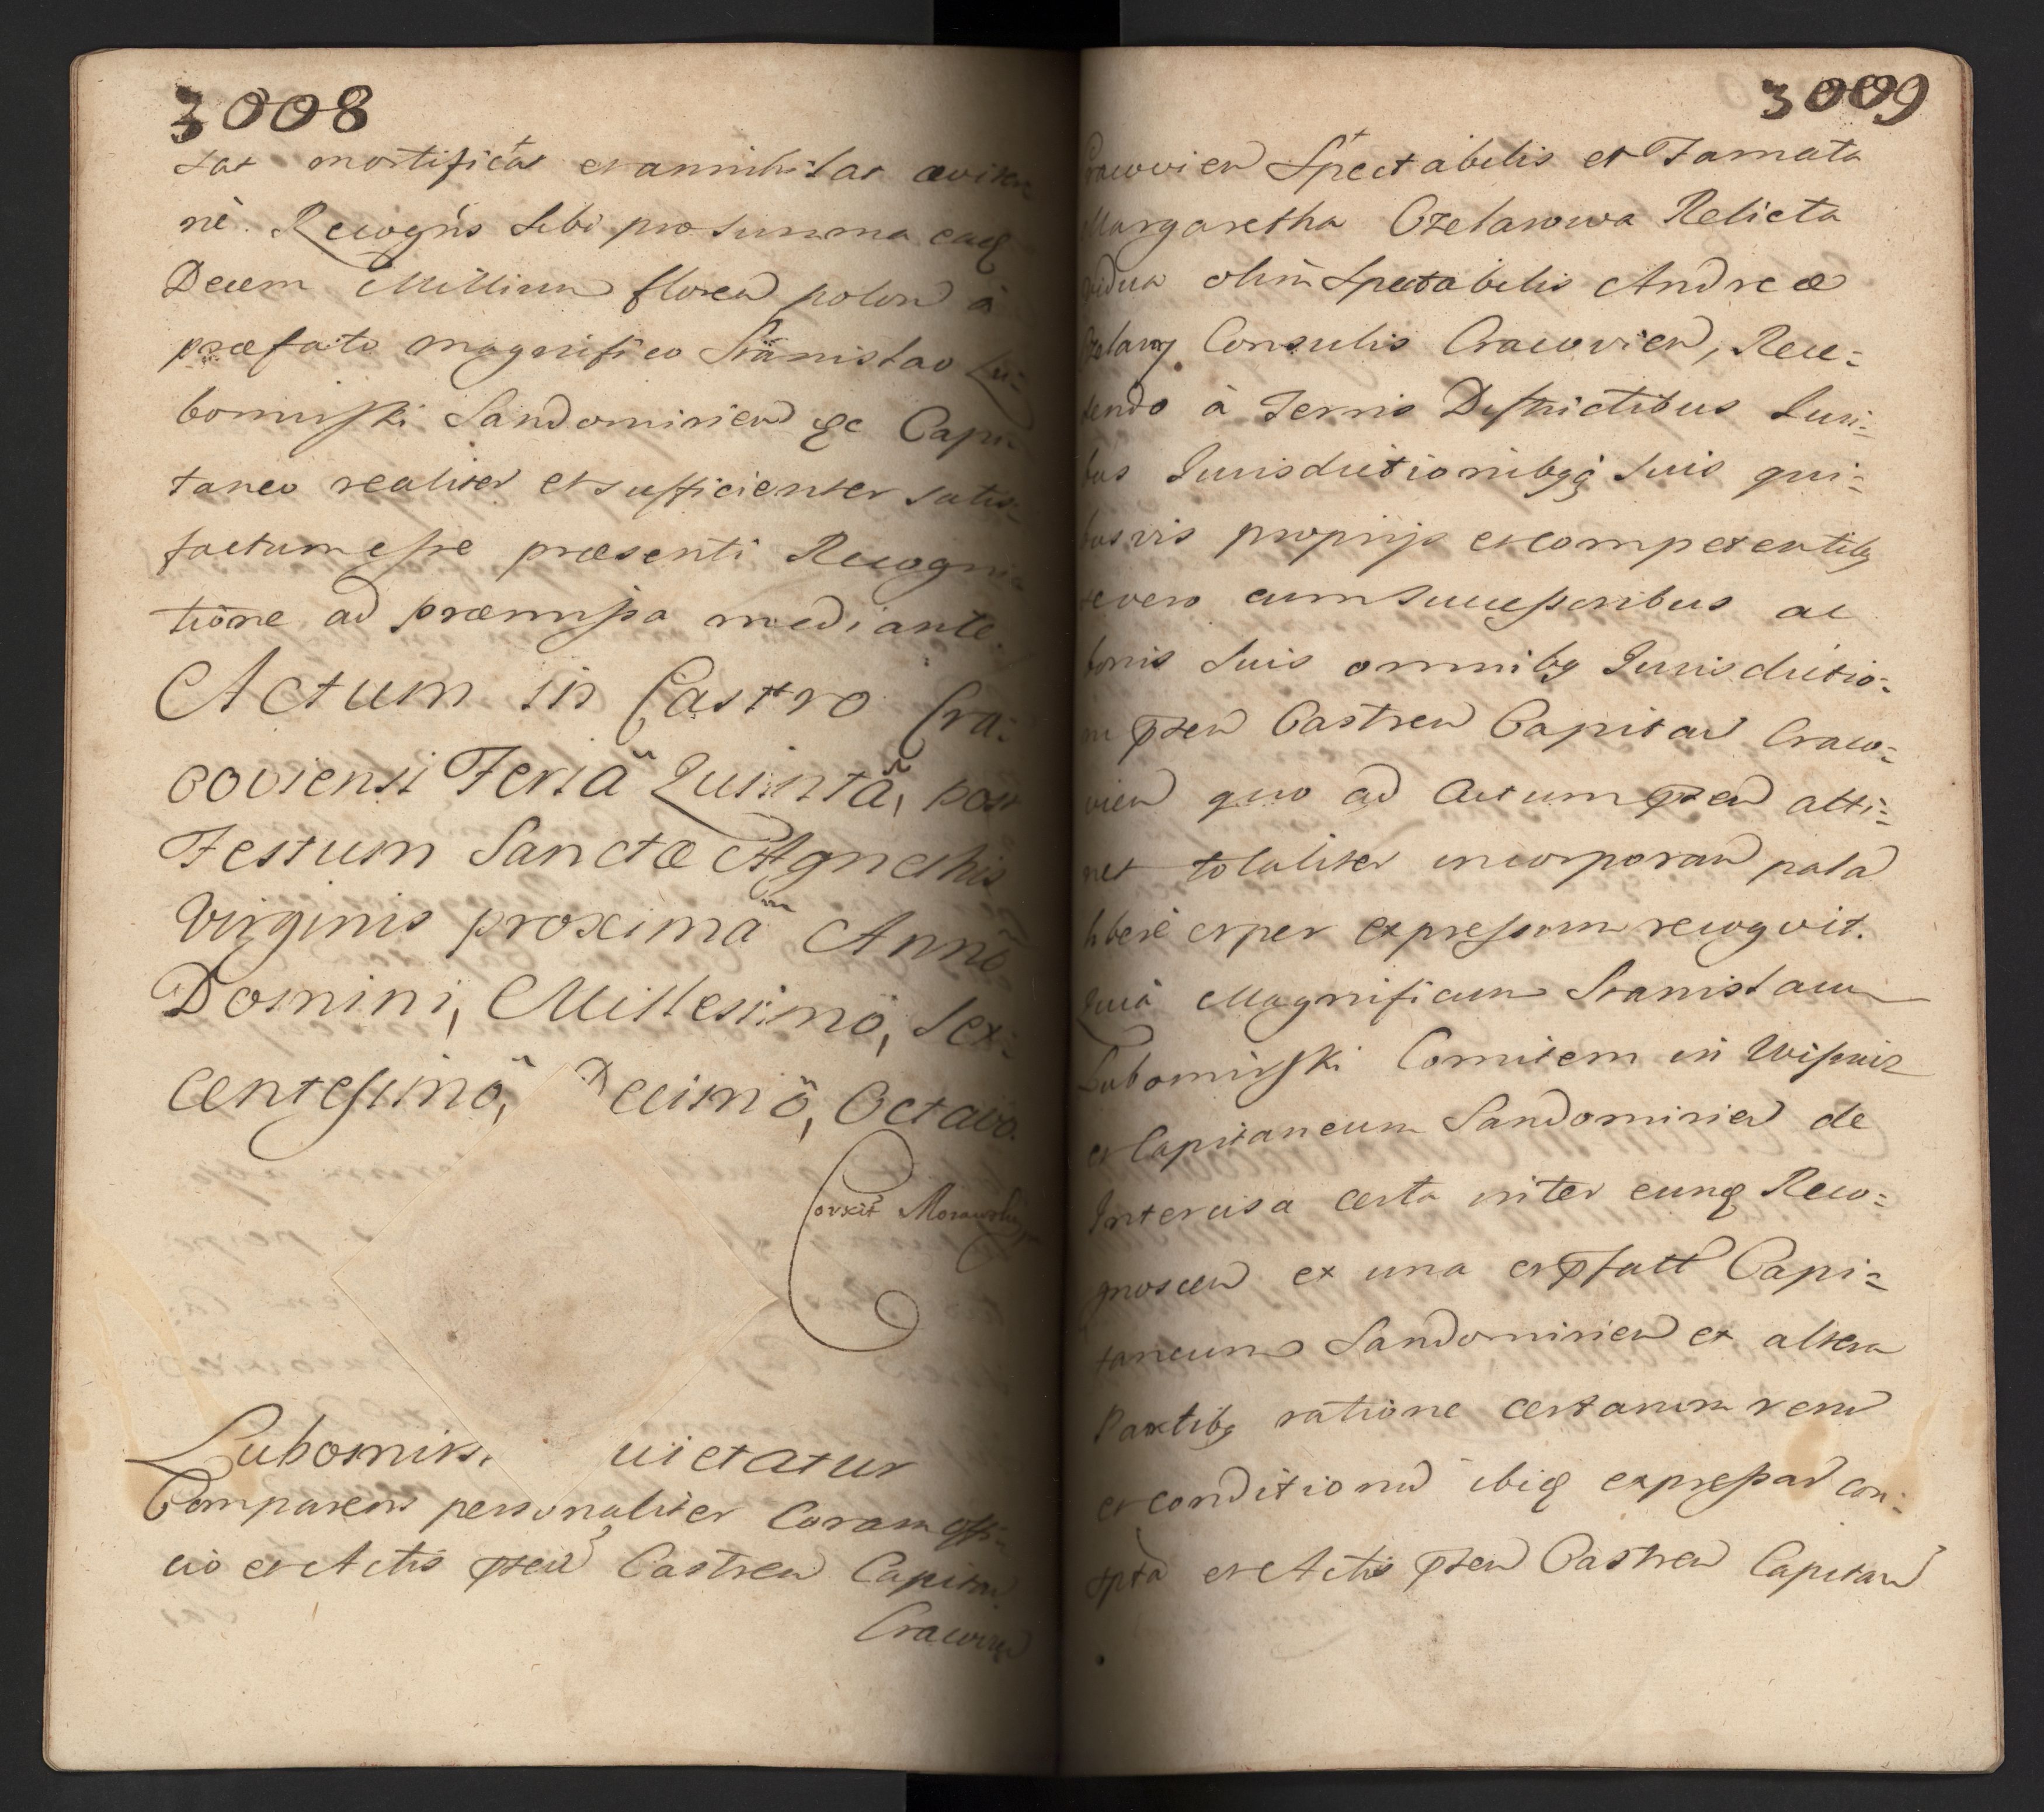 3008
tat mortificat et annihilat æviter
nè. Recogns Sibi pro summa eadq
Decem Millium floren polon à
præfato magnifico Stanislao Lu=
bomirski Sandomirien &c Capi
taneo realiter et sufficienter satis=
factum esse præsenti Recogni
tione ad præmissa mediante.
Actum in Castro Cra:
coviensi Feriâ Quintâ, post
Festum Sanctæ Agnethis
Virginis proximâ Annô
Domini, Millesimô, Sex:
centesimô, Decimô, Octavo.
Corxit Morawski
Lubomirs. uietatur
Comparens personaliter Coram offi=
cio et Actis pzen Castren Capitan
Cracovien
3009
Cracovien Spectabilis et Famata
Margaretha Czelarowa Relicta
vidua olim Spectabilis Andreæ
Czelary Consulis Cracovien, Rece=
dendo à Terris Districtibus Juri=
bus Jurisdictionibqq suis qui=
busvis proprijs et competentibq
se vero cum Successoribus ac
bonis Suis omnibq Jurisdictio=
ni pzen Castren Capitan Craco=
vien quo ad Actum pzen atti=
net totaliter incorporan palã
liberè et per expressum recogvit.
Quià Magnificum Stanislaum
Lubomirski Comitem in Wisnicz
et Capitaneum Sandomirien de
Intercisa certa inter eunq Reco=
gnoscen ex una et pfatt Capi=
taneum Sandomirien ex altera
Partibq ratione certarum rerum
et conditionu ibiq expressar con=
tpta et Actis pzen Castren Capitan